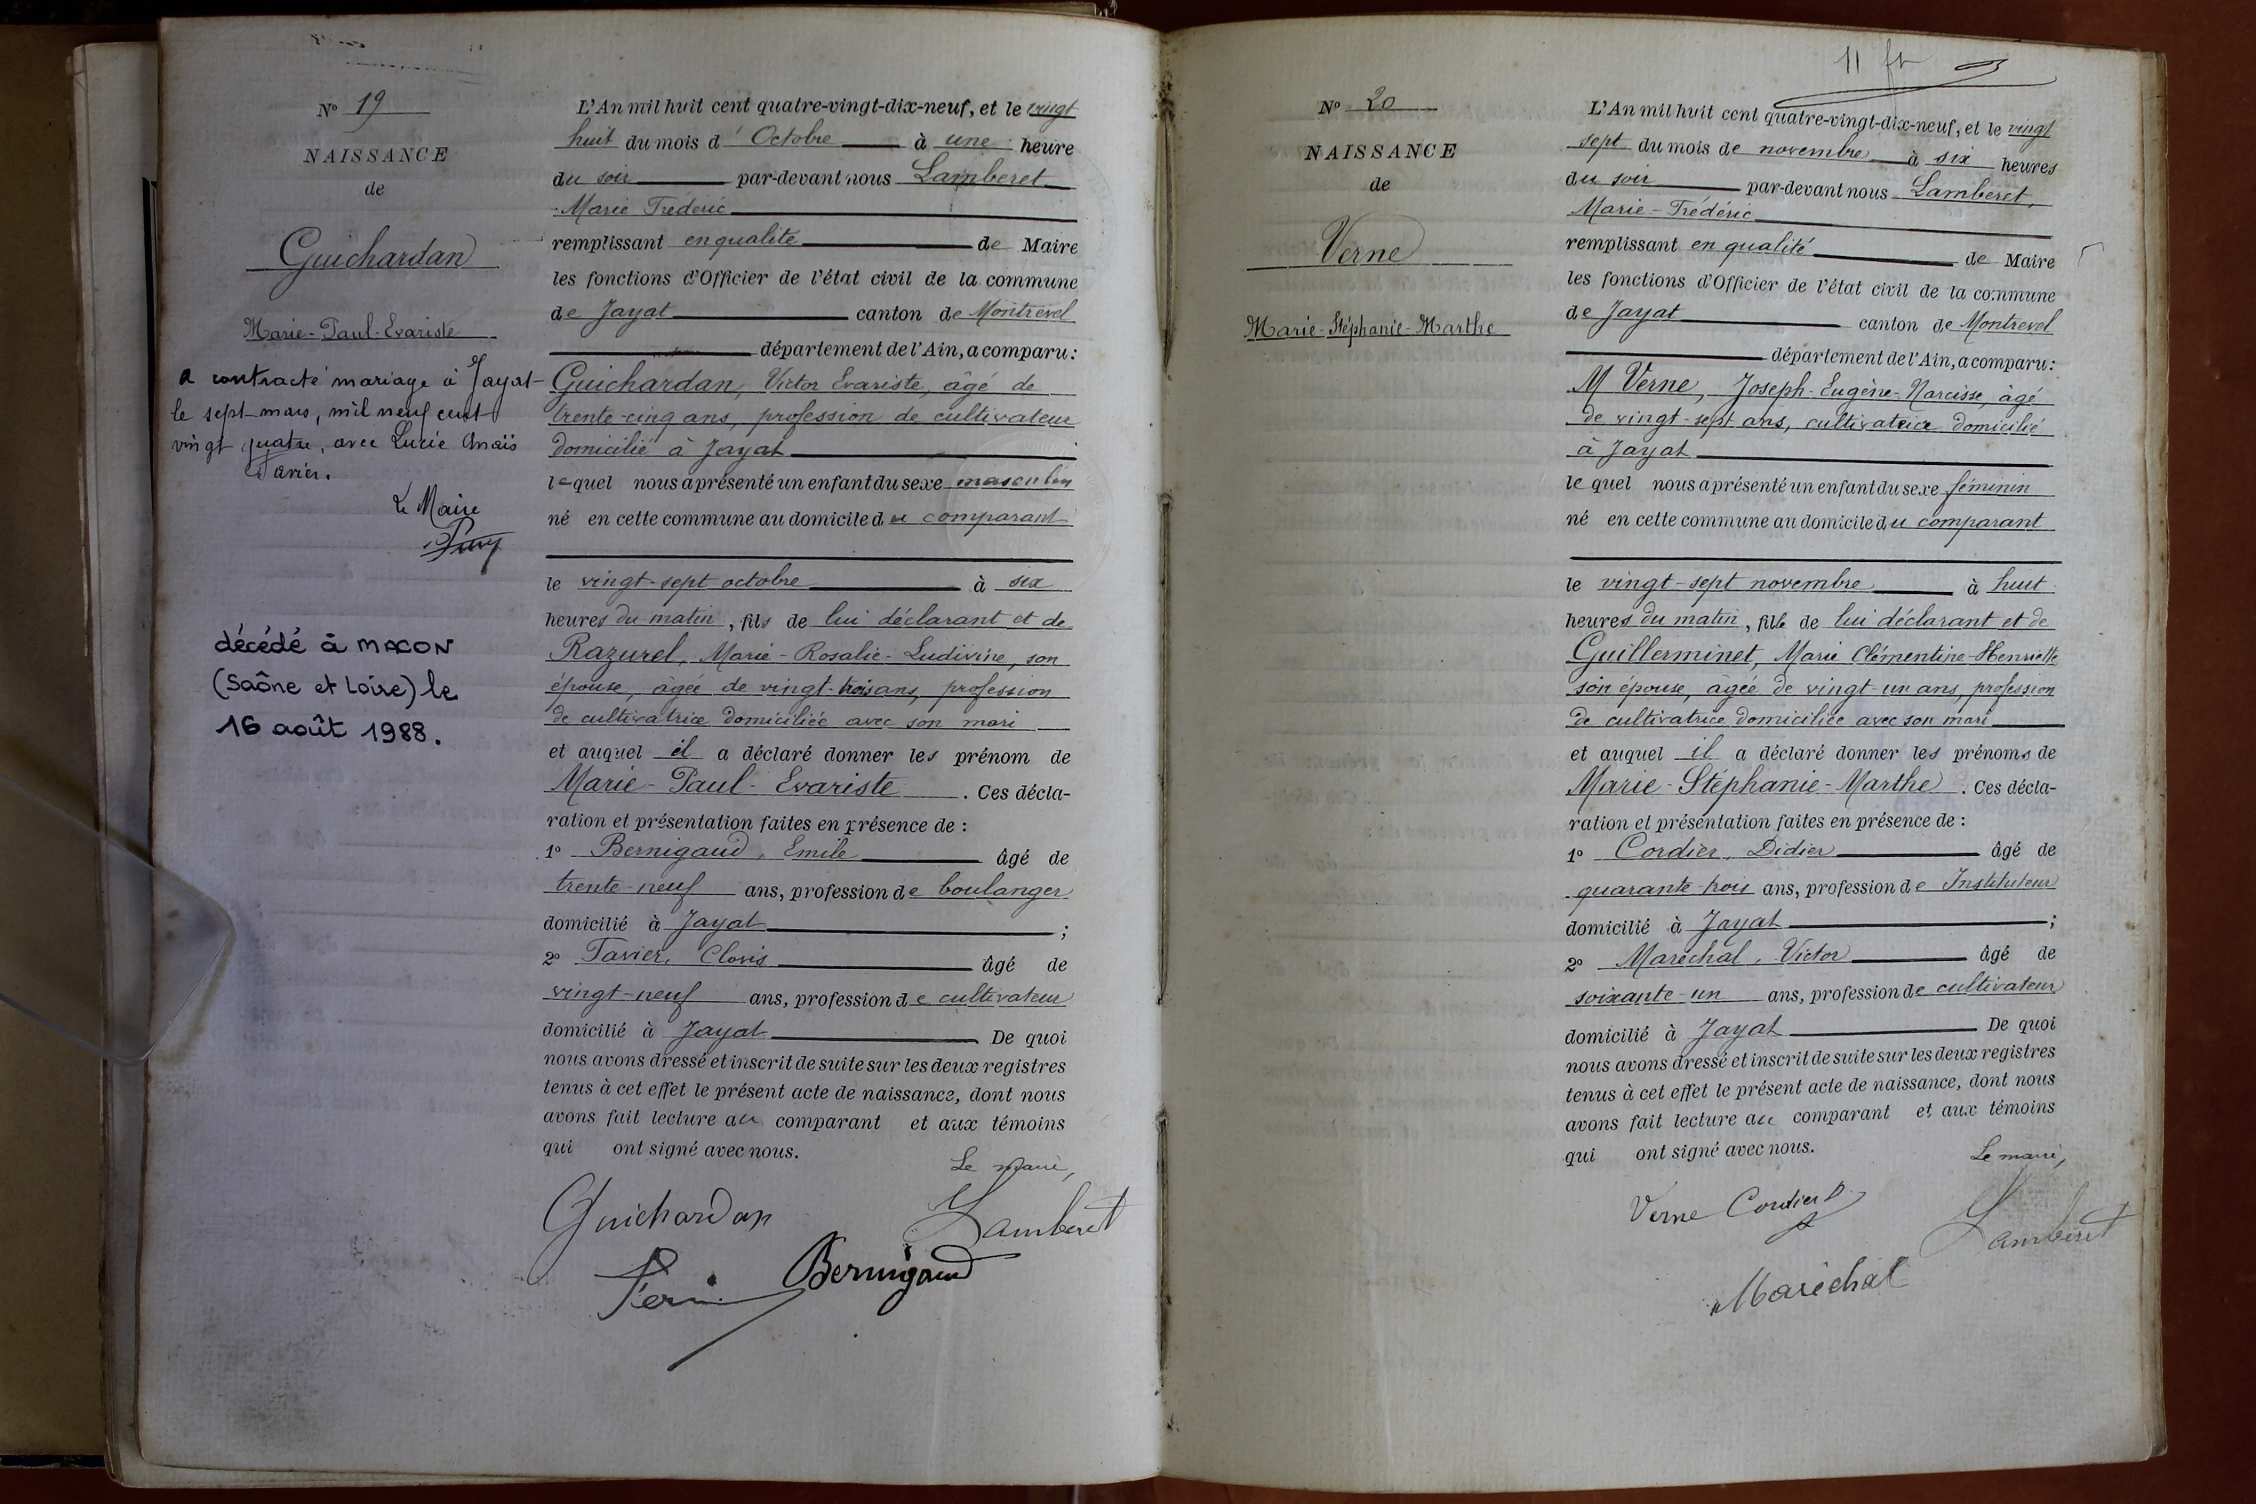 Nº 19
NAISSANCE
de
Guichardan
Marie-Paul-Evariste
a contracté mariage à Jayat
le sept mars, mil neuf cent
vingt quatre, avec Lucie Anaïs
Tavier.
Le Maire
décédé à MACON
(Saône et Loire) le
16 août 1988.
L'An mil huit cent quatre-vingt-dix-neuf, et le vingt
huit du mois d'Octobre à une heure
du soir par-devant nous Lamberet
Marie Frédéric
remplissant en qualité de Maire
les fonctions d'Officier de l'état civil de la commune
de Jayat canton de Montrevel
département de l'Ain, a comparu:
Guichardan, Victor Evariste, âgé de
trente-cinq ans, profession de cultivateur
domicilié à Jayat
lequel nous a présenté un enfant du sexe masculin
né en cette commune au domicile du comparant
le vingt-sept octobre à six
heures du matin, fils de lui déclarant et de
Razurel, Marie-Rosalie-Ludivine, son
épouse, âgée de vingt-trois ans, profession
de cultivatrice domiciliée avec son mari
et auquel il a déclaré donner les prénom de
Marie-Paul-Evariste. Ces décla-
ration et présentation faites en présence de :
1º Bernigaud, Emile âgé de
trente-neuf ans, profession de boulanger
domicilié à Jayat ;
2º Tavier, Clovis âgé de
vingt-neuf ans, profession de cultivateur
domicilié à Jayat De quoi
nous avons dressé et inscrit de suite sur les deux registres
tenus à cet effet le présent acte de naissance, dont nous
avons fait lecture au comparant et aux témoins
qui ont signé avec nous.
Le maire,
Guichardan Lamberet
Bernigaud
11
Nº 20
NAISSANCE
de
Verne
Marie-Stéphanie-Marthe
L'An mil huit cent quatre-vingt-dix-neuf, et le vingt
sept du mois de novembre à six heures
du soir par-devant nous Lamberet,
Marie-Frédéric
remplissant en qualité de Maire
les fonctions d'Officier de l'état civil de la commune
de Jayat canton de Montrevel
département de l'Ain, a comparu:
M Verne, Joseph-Eugène-Narcisse, âgé
de vingt-sept ans, cultivatrice domicilié
à Jayat
lequel nous a présenté un enfant du sexe féminin
né en cette commune au domicile du comparant
le vingt-sept novembre à huit
heures du matin, fille de lui déclarant et de
Guillerminet, Marie Clémentine-Henriette
son épouse, âgée de vingt-un ans, profession
de cultivatrice domiciliée avec son mari
et auquel il a déclaré donner les prénoms de
Marie-Stéphanie-Marthe. Ces décla-
ration et présentation faites en présence de :
1º Cordier, Didier âgé de
quarante-trois ans, profession de Instituteur
domicilié à Jayat ;
2º Maréchal, Victor âgé de
soixante-un ans, profession de cultivateur
domicilié à Jayat De quoi
nous avons dressé et inscrit de suite sur les deux registres
tenus à cet effet le présent acte de naissance, dont nous
avons fait lecture au comparant et aux témoins
qui ont signé avec nous.
Le maire,
Verne Cordier D Lamberet
Maréchal